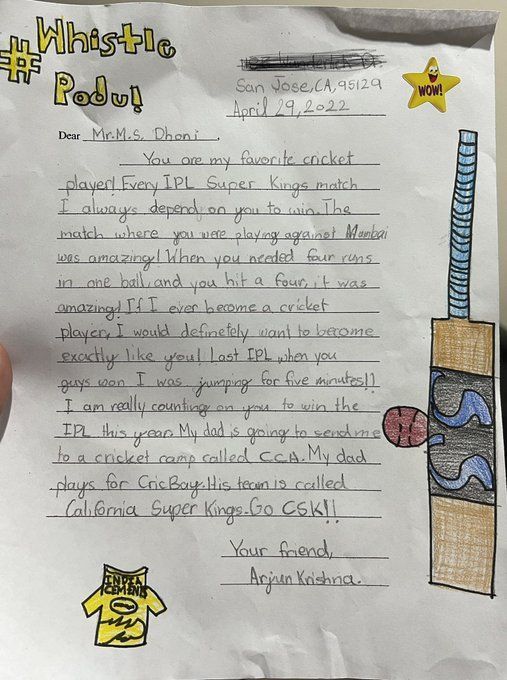 #Whistle
Podu!
San Jose, CA, 95129
April 29, 2022
WOW!
Dear Mr. M.S. Dhoni,
You are my favorite cricket
player! Every IPL Super Kings match
I always depend on you to win. The
match where you were playing against Mumbai
was amazing! When you needed four runs
in one ball, and you hit a four, it was
amazing! If I ever become a cricket
player, I would definetely want to become
exactly like you! Last IPL, when you
guys won I was jumping for five minutes!!
I am really counting on you to win the
IPL this year. My dad is going to send me
to a cricket camp called CCA. My dad
plays for CricBay. His team is called
California Super Kings. Go CSK!!
Your friend,
Arjun Krishna.
SS
INDIA
CEMENTS